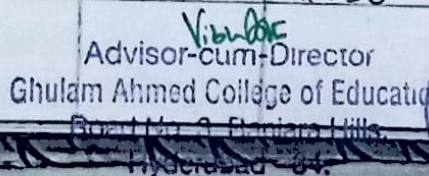 Advisor-cum-Director
Ghulam Ahmed College of Educatio
Road No. 3, Banjara Hills,
Hyderabad - 34.